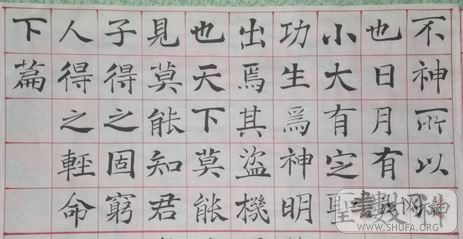 不神所以神
也日月有數
小大有定聖
功生焉神明
出焉其盜機
也天下莫能
見莫能知君
子得之固窮
人得之輕命
下篇
WWW.SHUFA.ORG